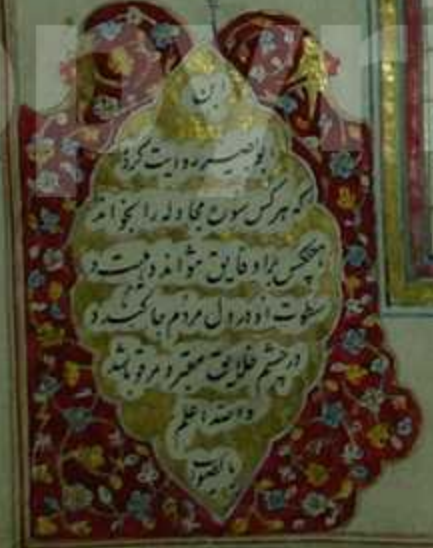 ابن
ابوبصیر روایت کرده
که هرکس سوره مجادله را بخواند
هیچکس براو فایق نتواند و هیبت و
سطوت او در دل مردم جا کند و
در چشم خلایق معتبر و موقر باشد
والله اعلم
بالصواب